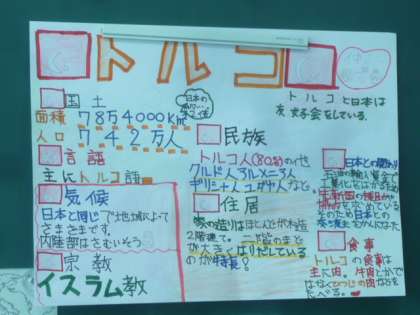 トルコ
国土
日本の
面積 78万4000km²
人口 742万人
言語
主にトルコ語
気候
日本と同じで地域によって
さまざまです。
内陸部はさむいそう
宗教
イスラム教
トルコと日本は
友好会をしている。
民族
トルコ人(80%)の他
クルド人アルメニア人
ギリシャ人ユダヤ人など。
住居
家の造りはほとんどが木造
2階建て。二階のまど
が大きくはりだしている
のが特長!
日本との関わり
そのため日本との
食事
トルコの食事は
主に肉。牛肉とかで
はなくひつじの肉などを
たべる。